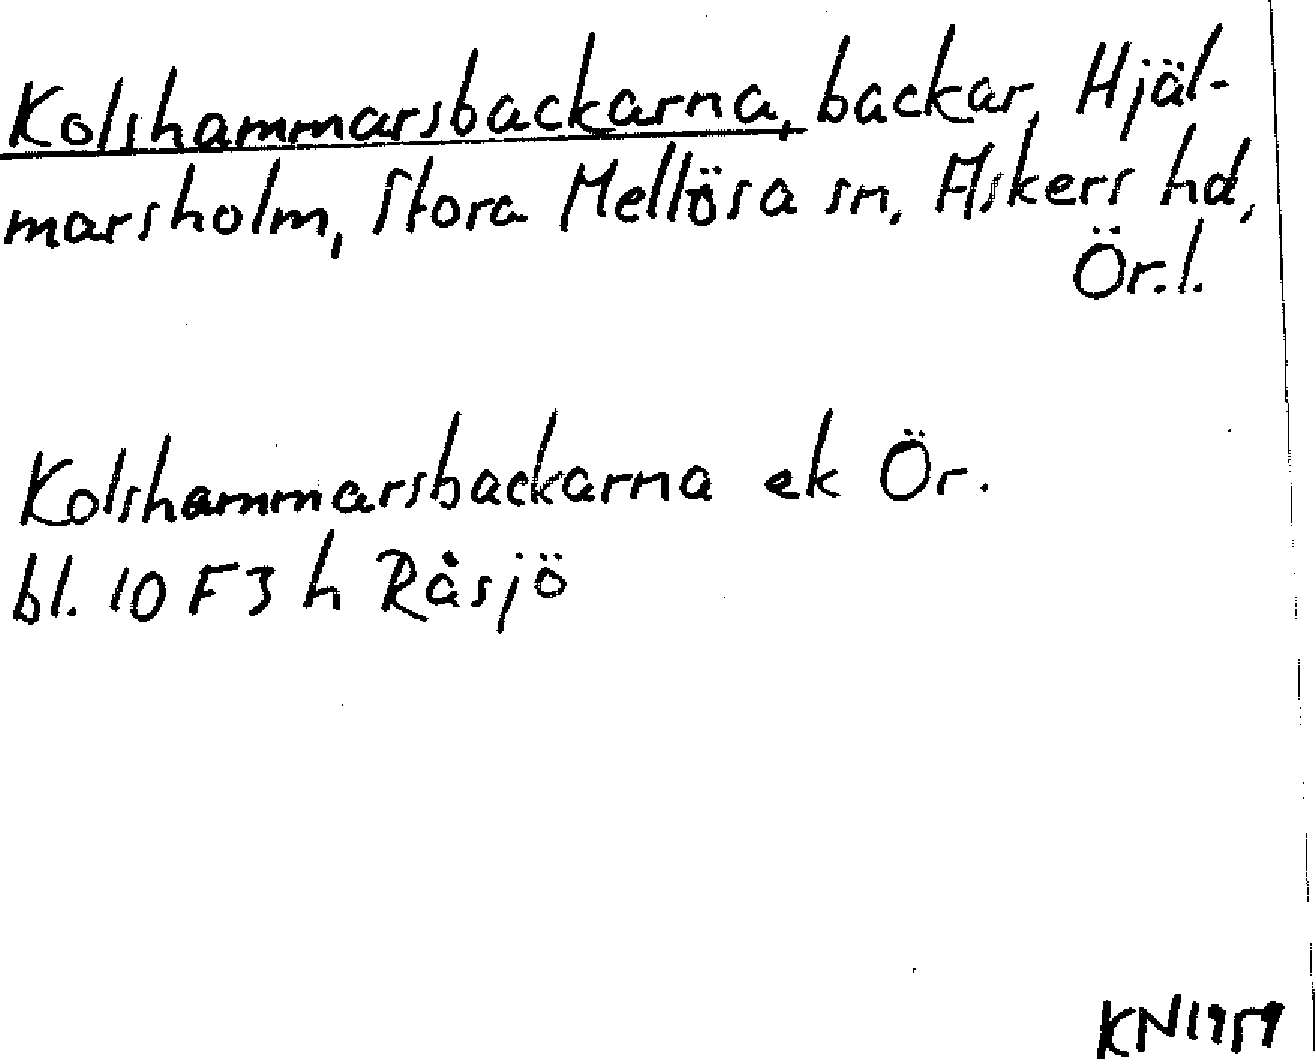 Kolshammarsbackarna, backar, Hjäl-
marsholm, Stora Mellösa sn, Askers hd,
Ör. l.
Kolshammarsbackarna ek Ör.
bl. 10 F 3 h Råsjö
KN 1959